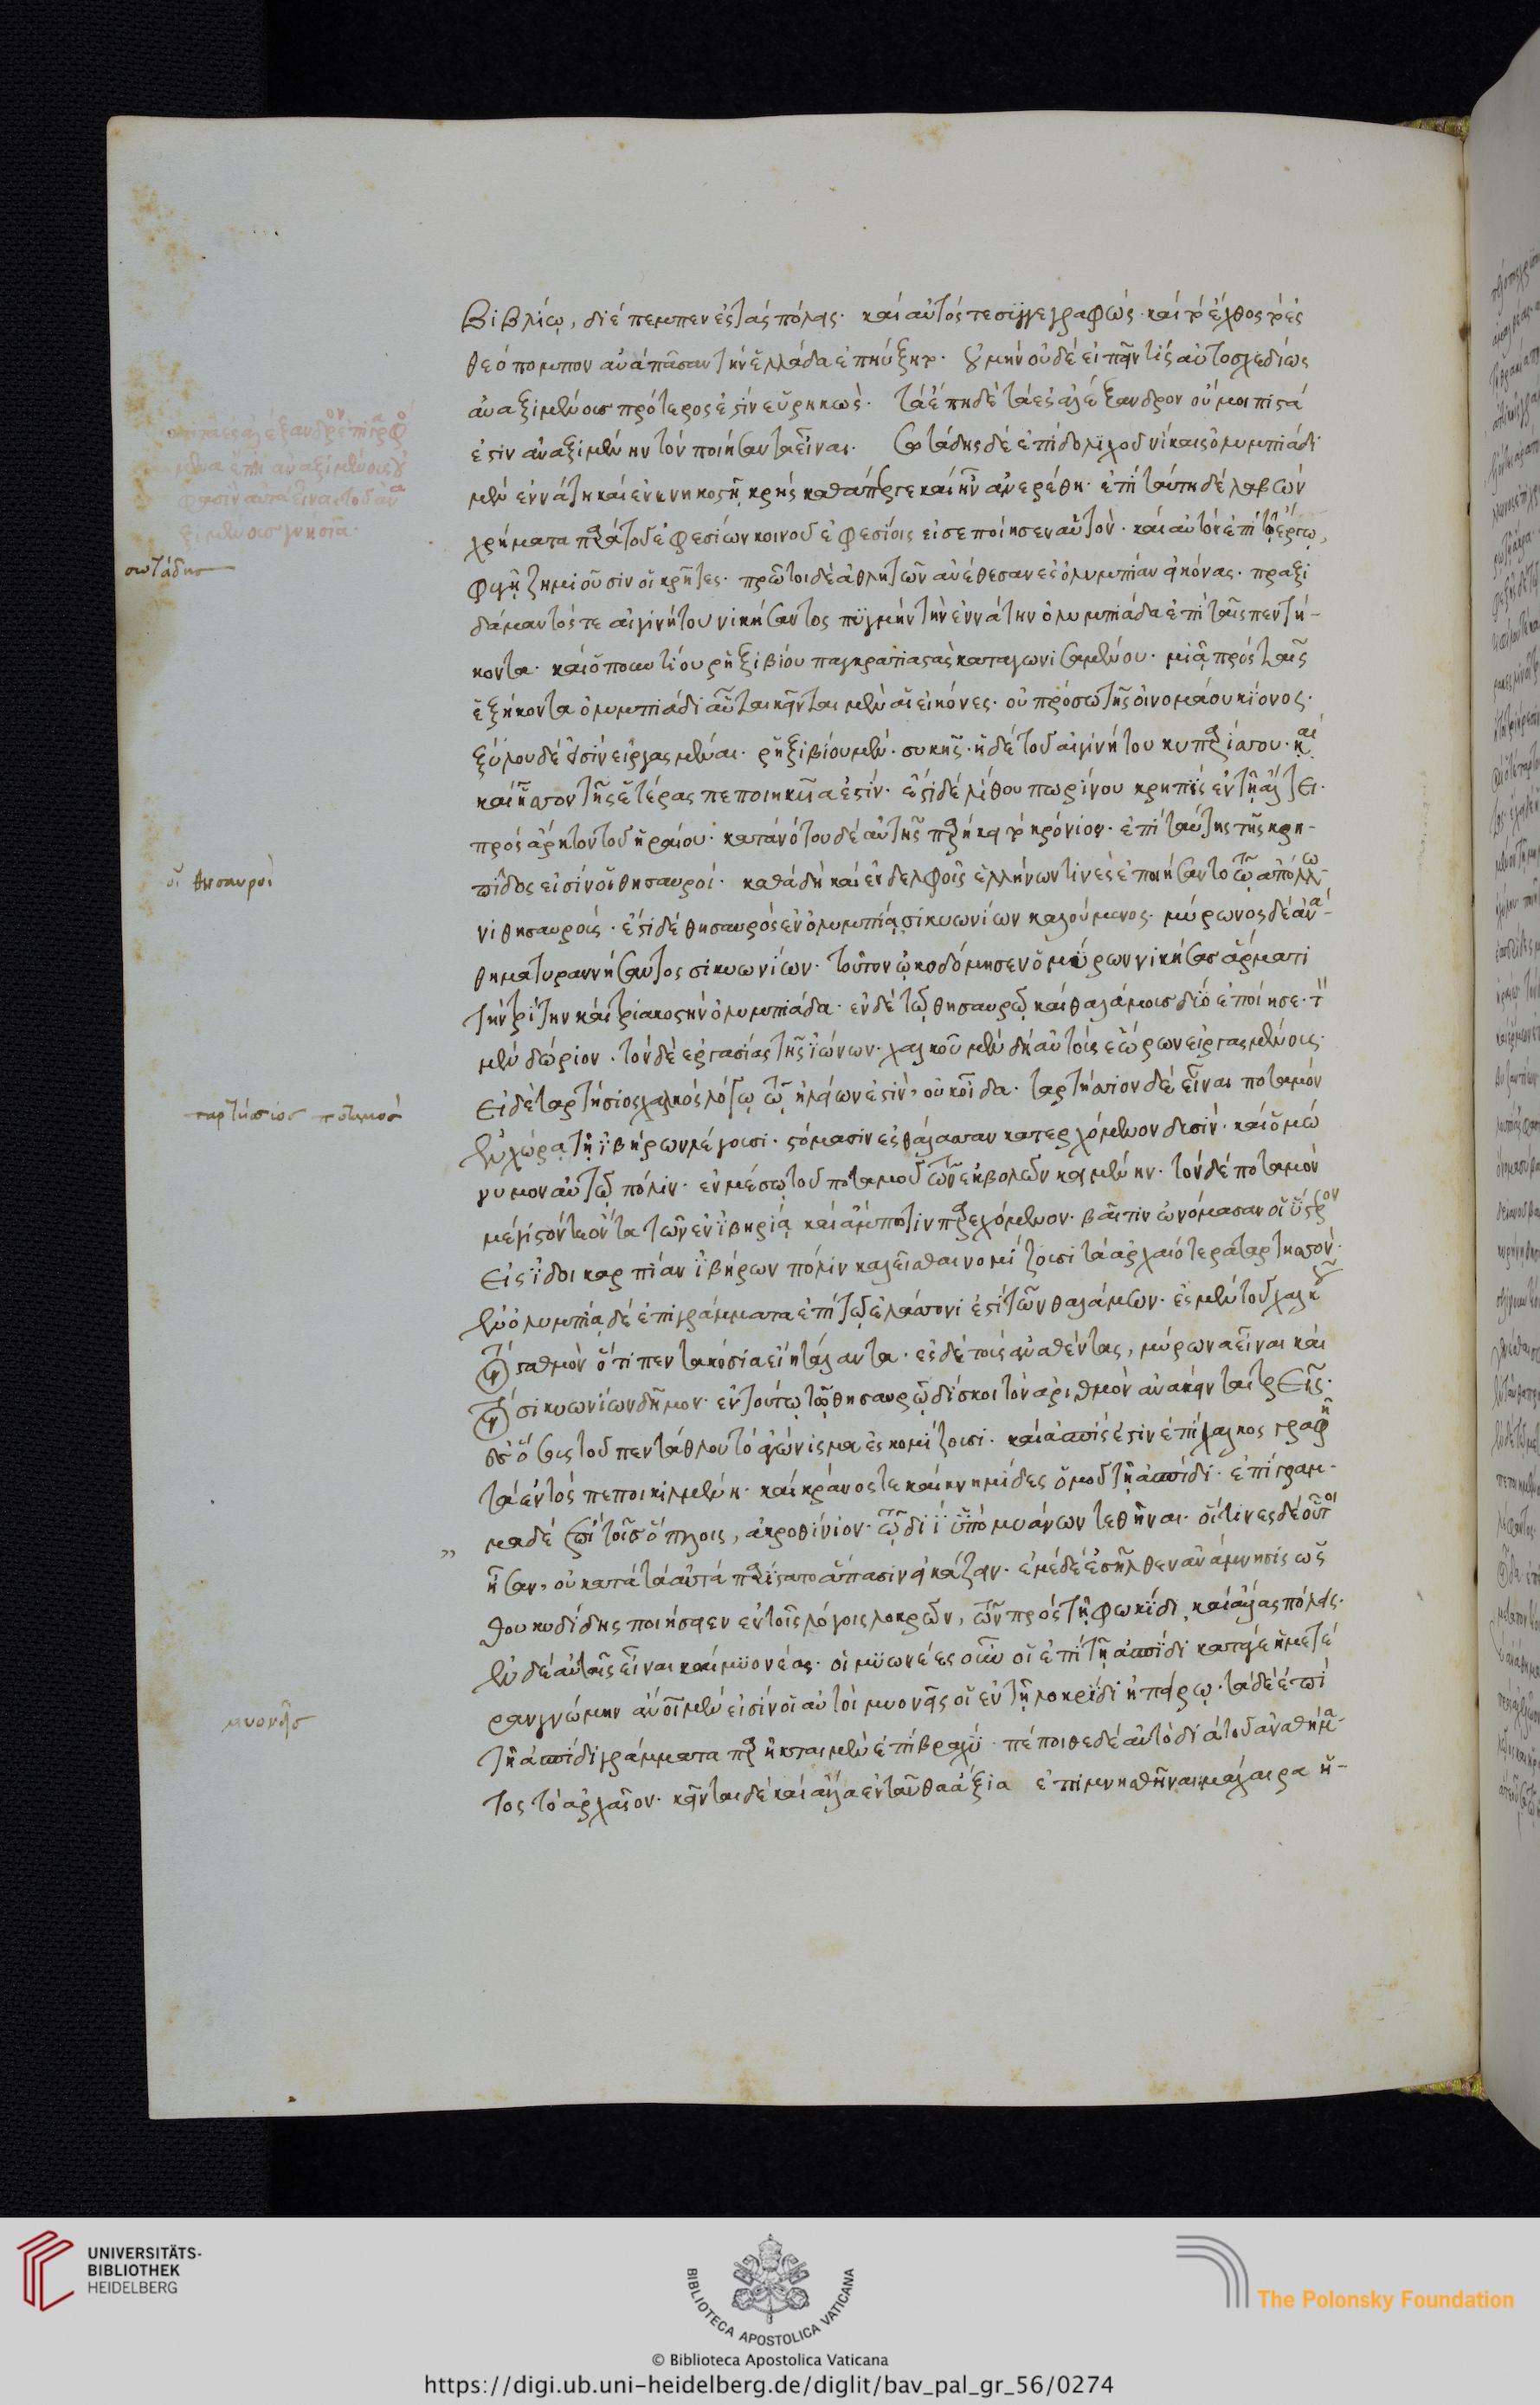 βιβλίῳ, διέπεμπεν ἐς τὰς πόλεις· καὶ αὐτός τε συγγεγραφὼς· καὶ τὸ ἔχθος τὸ ἐς
θεόπομπον ἀνὰ πᾶσαν τὴν ἑλλάδα ἐπηύξητο· οὐ μὴν οὐδὲ εἰπεῖν τις αὐτοσχεδίως
ἀναξιμένους πρότερος ἐστὶν εὑρηκὼς· τὰ ἔπη δὲ τὰ ἐς ἀλέξανδρον οὔ μοι πιστά
ἐστιν ἀναξιμένην τὸν ποιήσαντα εἶναι. Σωτάδης δὲ ἐπὶ δολίχου νίκαις ὀλυμπιάδι
μὲν ἐννάτη καὶ ἐνενηκοστῇ κρὴς καθάπερ γε καὶ ἦν ἀνερέθη· ἐπὶ ταύτη δὲ λαβὼν
χρήματα παρὰ τοῦ ἐφεσίων κοινοῦ ἐφεσίοις εἰσεποίησεν αὑτὸν· καὶ αὐτὸν ἐπὶ τῷ ἔργῳ,
φυγῇ ζημιοῦσιν οἱ κρῆτες· πρῶτοι δὲ ἀθλητῶν ἀνέθεσαν ἐς ὀλυμπίαν εἰκόνας· πραξι
δάμαντός τε αἰγινήτου νικήσαντος πυγμὴν τὴν ἐννάτην ὀλυμπιάδα ἐπὶ ταῖς πεντή-
κοντα· καὶ ὀπουντίου ῥηξιβίου παγκρατιαστὰς καταγωνισαμένου· μιᾷ πρὸς ταῖς
ἑξήκοντα ὀλυμπιάδι αὗται κεῖνται μὲν αἱ εἰκόνες· οὐ πρόσω τῆς οἰνομάου κίονος·
ξύλου δέ εἰσιν εἰργασμέναι· ῥηξιβίου μὲν· συκῆς· ἡ δὲ τοῦ αἰγινήτου κυπαρίσσου· καὶ
καὶ ἧσσον τῆς ἑτέρας πεπονηκυῖα ἐστίν· ἔστι δὲ λίθου πωρίνου κρηπὶς ἐν τῇ ἄλτει·
πρὸς ἄρκτον τοῦ ἡραίου· κατὰ νότου δὲ αὐτῆς παρήκει τὸ κρόνιον· ἐπὶ ταύτης τῆς κρη-
πῖδος εἰσὶν οἱ θησαυροί· καθὰ δὴ καὶ ἐν δελφοῖς ἑλλήνων τινὲς ἐποιήσαντο τῷ ἀπόλλω-
νι θησαυρούς· ἔστι δὲ θησαυρὸς ἐν ὀλυμπίᾳ σικυωνίων καλούμενος· μύρωνος δὲ ἀνά-
θημα τυραννήσαντος σικυωνίων· τοῦτον ᾠκοδόμησεν ὁ μύρων νικήσας ἅρματι
τὴν τρίτην καὶ τριακοστὴν ὀλυμπιάδα· ἐν δὲ τῷ θησαυρῷ καὶ θαλάμους δύο ἐποίησε· τὸν
μὲν δώριον· τὸν δὲ ἐργασίας τῆς ἰώνων· χαλκοῦ μὲν δὴ αὐτοὺς ἑώρων εἰργασμένους·
εἰ δὲ ταρτήσιος χαλκὸς λόγῳ τῷ ἠλείων ἐστὶν, οὐκ οἶδα· ταρτήσιον δὲ εἶναι ποταμὸν
ἐν χώρᾳ τῇ ἰβήρων λέγουσι· στόμασιν ἐς θάλασσαν κατερχόμενον δυσίν· καὶ ὁμώ
νυμον αὐτῷ πόλιν· ἐν μέσῳ τοῦ ποταμοῦ τῶν ἐκβολῶν κειμένην· τὸν δὲ ποταμὸν
μέγιστόν τε ὄντα τῶν ἐν ἰβηρίᾳ καὶ ἄμπωτιν παρεχόμενον· βαῖτιν ὠνόμασαν οἱ ὕστερον
εἰσὶ δ' οἳ καρπίαν ἰβήρων πόλιν καλεῖσθαι νομίζουσι τὰ ἀρχαιότερα ταρτησσόν·
ἐν ὀλυμπίᾳ δὲ ἐπιγράμματα ἐπὶ τῷ ἐλάσσονι ἐστὶ τῶν θαλάμων· ἐς μὲν τοῦ χαλκοῦ
τὸν σταθμὸν ὅτι πεντακόσια εἴη τάλαντα· ἐς δὲ τοὺς ἀναθέντας, μύρωνα εἶναι καὶ
τὸν σικυωνίων δῆμον· ἐν τούτῳ τῷ θησαυρῷ δίσκοι τὸν ἀριθμὸν ἀνάκεινται τρεῖς·
ὅσους τοῦ πεντάθλου τὸ ἀγώνισμα ἐσκομίζουσι· καὶ ἀσπίς ἐστιν ἐπίχαλκος γραφῇ
τὰ ἐντὸς πεποικιλμένη· καὶ κράνος τε καὶ κνημῖδες ὁμοῦ τῇ ἀσπίδι· ἐπίγραμ-
μα δὲ ἐπὶ τοῖς ὅπλοις, ἀκροθίνιον· τῷ διὶ ὑπὸ μυάνων τεθῆναι· οἵτινες δὲ οὗτοι
ἦσαν, οὐ κατὰ τὰ αὐτὰ παρίστατο ἅπασιν εἰκάζειν· ἐμὲ δὲ ἐσῆλθεν ἀνάμνησις ὡς
θουκυδίδης ποιήσειεν ἐν τοῖς λόγοις λοκρῶν, τῶν πρὸς τῇ φωκίδι, καὶ ἄλλας πόλεις·
ἐν δὲ αὐταῖς εἶναι καὶ μυονέας· οἱ μυωνέες οὖν οἱ ἐπὶ τῇ ἀσπίδι κατά γε ἡμετέ
ραν γνώμην ἄνοι μὲν εἰσὶν οἱ αὐτοὶ μυονεῖς οἱ ἐν τῇ λοκρίδι ἠπείρῳ· τὰ δὲ ἐπὶ
τῇ ἀσπίδι γράμματα παρῆκται μὲν ἐπὶ βραχὺ· πέπονθε δὲ αὐτὸ διὰ τοῦ ἀναθήμα-
τος τὸ ἀρχαῖον· κεῖνται δὲ καὶ ἄλλα ἐνταῦθα ἄξια ἐπιμνησθῆναι· μάχαιρα ἡ-
σωτάδης
οἱ θησαυροὶ
ταρτήσιος ποταμὸς
μυονεῖς
UNIVERSITÄTS-
BIBLIOTHEK
HEIDELBERG
BIBLIOTECA APOSTOLICA VATICANA
The Polonsky Foundation
© Biblioteca Apostolica Vaticana
https://digi.ub.uni-heidelberg.de/diglit/bav_pal_gr_56/0274